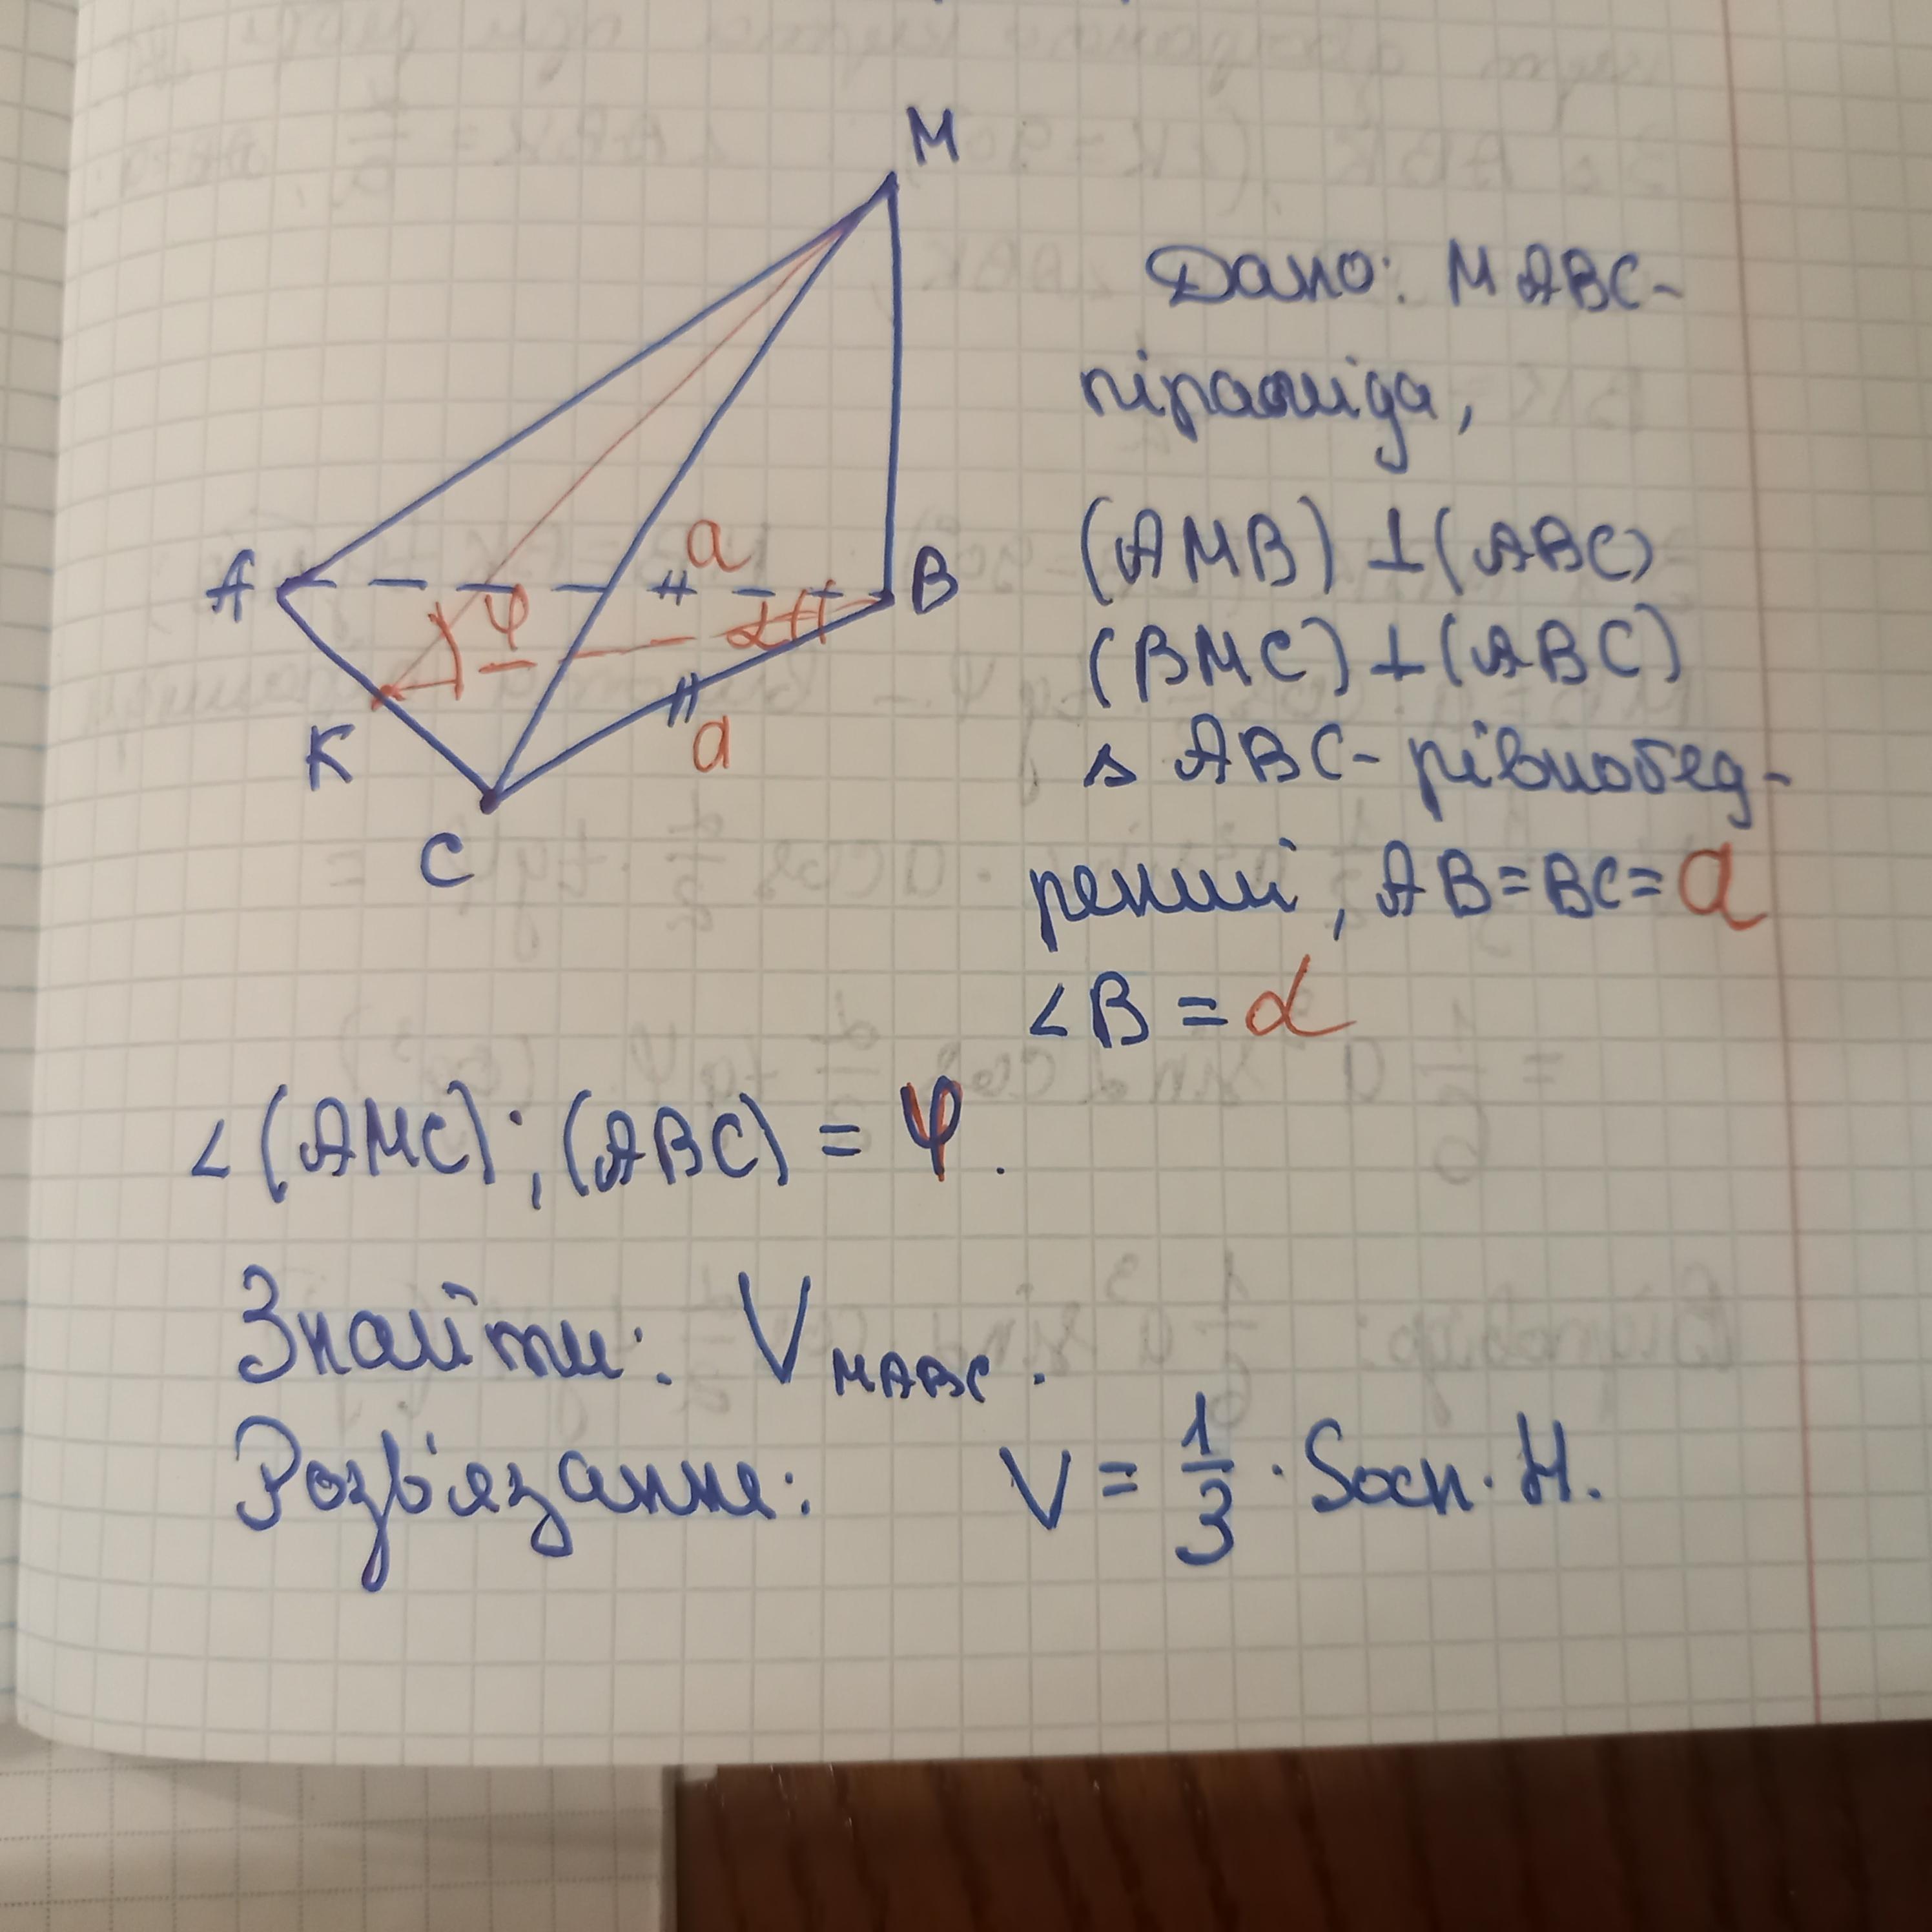 M
Дано: MABC-
піраміда,
a
A
B
(AMB) ⊥ (ABC)
φ
α
(BMC) ⊥ (ABC)
K
a
Δ ABC - рівнобед-
C
рений, AB = BC = a
∠B = α
∠(AMC); (ABC) = φ.
Знайти: V MABC.
Розв'язання: V = 1/3 · Sосн · H.